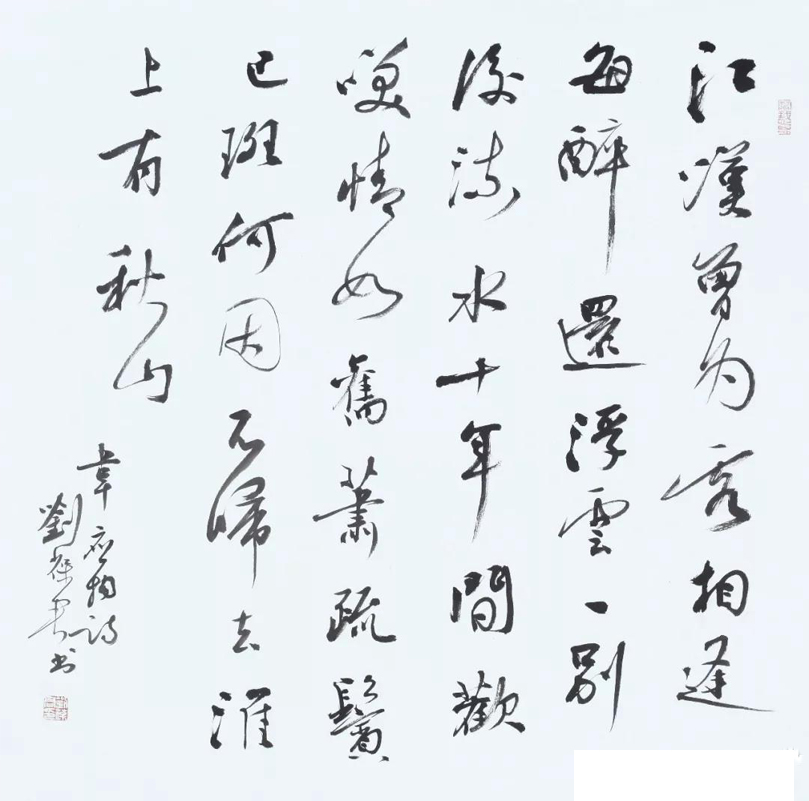 江漢曾为客相逢
每醉還浮雲一别
後流水十年間歡
咲情如舊蕭疏鬢
已斑何因不歸去淮
上有秋山
韋應物詩
劉书